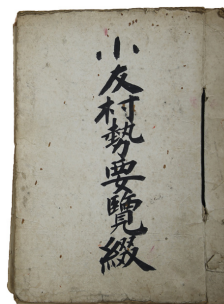 小友村勢要覽綴